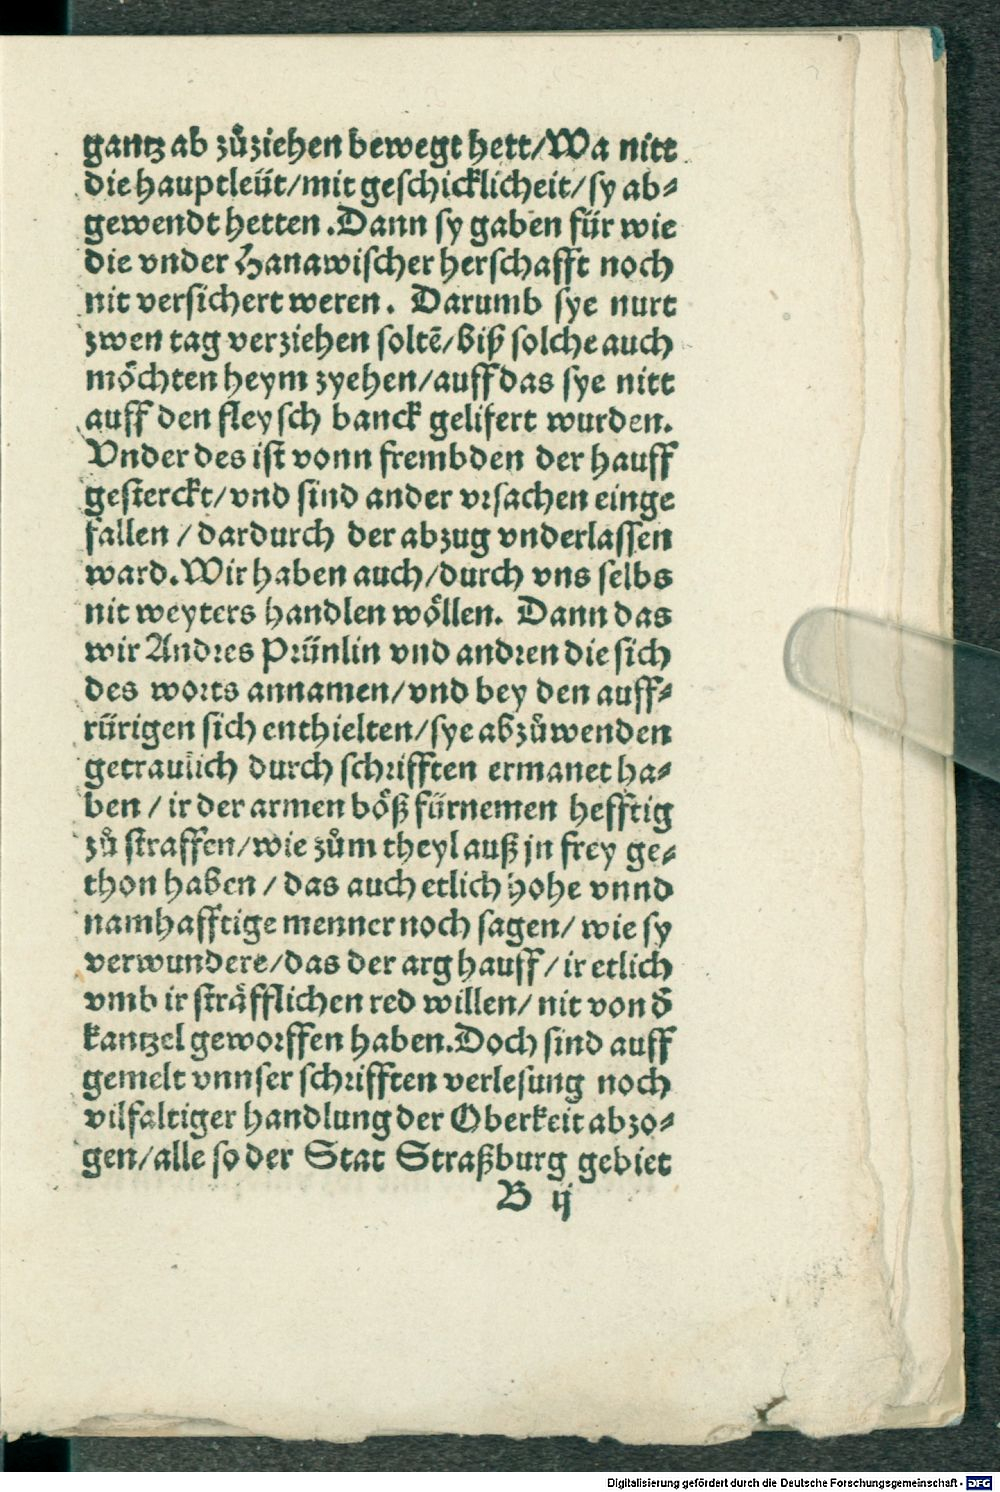 gantz ab zůziehen bewegt hett/Wa nitt
die hauptleüt/mit geschicklicheit/sy ab-
gewendt hetten. Dann sy gaben für wie
die vnder Hanawischer herschafft noch
nit versichert weren. Darumb sye nurt
zwen tag verziehen soltē/biß solche auch
möchten heym zyehen/auff das sye nitt
auff den fleysch banck gelifert wurden.
Vnder des ist vonn frembden der hauff
gesterckt/vnd sind ander vrsachen einge
fallen/dardurch der abzug vnderlassen
ward. Wir haben auch/durch vns selbs
nit weyters handlen wöllen. Dann das
wir Andres Prünlin vnd andren die sich
des worts annamen/vnd bey den auff-
rürigen sich enthielten/sye abzůwenden
getraulich durch schrifften ermanet ha-
ben/ir der armen böß fürnemen hefftig
zů straffen/wie zům theyl auß jn frey ge-
thon haben/das auch etlich hohe vnnd
namhafftige menner noch sagen/wie sy
verwundere/das der arg hauff/ir etlich
vmb ir sträfflichen red willen/nit von d̄
kantzel geworffen haben. Doch sind auff
gemelt vnnser schrifften verlesung noch
vilfaltiger handlung der Oberkeit abzo-
gen/alle so der Stat Straßburg gebiet
B ij
Digitalisierung gefördert durch die Deutsche Forschungsgemeinschaft - DFG